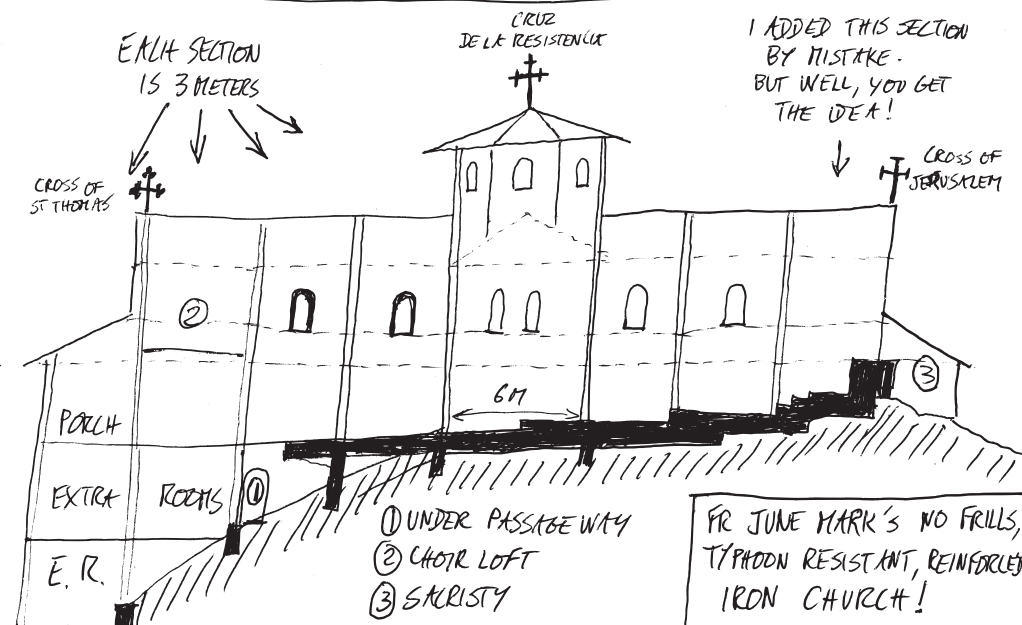 EACH SECTION
IS 3 METERS
CRUZ
DE LA RESISTENCIA
I ADDED THIS SECTION
BY MISTAKE.
BUT WELL, YOU GET
THE IDEA!
CROSS OF
ST THOMAS
CROSS OF
JERUSALEM
②
③
6M
PORCH
EXTRA ROOMS
①
E.R.
① UNDER PASSAGE WAY
② CHOIR LOFT
③ SACRISTY
FR JUNE MARK'S NO FRILLS,
TYPHOON RESISTANT, REINFORCED
IRON CHURCH!